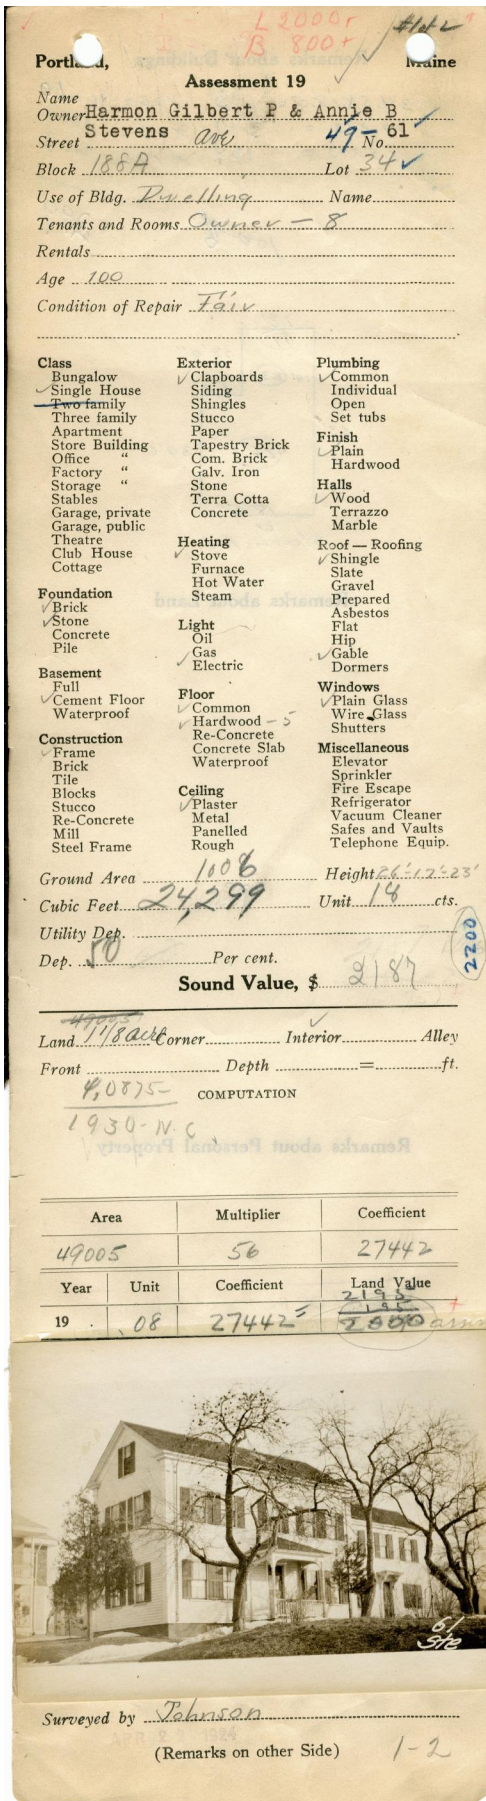 L 2000 +
B 800 +
#1 of 2
Portland, Maine
Assessment 19
Name
Owner Harmon Gilbert P & Annie B
Street Stevens ave 49- No. 61
Block 188A Lot 34
Use of Bldg. Dwelling Name
Tenants and Rooms Owner - 8
Rentals
Age 100
Condition of Repair Fair
Class
Bungalow
Single House
Two family
Three family
Apartment
Store Building
Office "
Factory "
Storage "
Stables
Garage, private
Garage, public
Theatre
Club House
Cottage
Foundation
Brick
Stone
Concrete
Pile
Basement
Full
Cement Floor
Waterproof
Construction
Frame
Brick
Tile
Blocks
Stucco
Re-Concrete
Mill
Steel Frame
Exterior
Clapboards
Siding
Shingles
Stucco
Paper
Tapestry Brick
Com. Brick
Galv. Iron
Stone
Terra Cotta
Concrete
Heating
Stove
Furnace
Hot Water
Steam
Light
Oil
Gas
Electric
Floor
Common
Hardwood - 5
Re-Concrete
Concrete Slab
Waterproof
Ceiling
Plaster
Metal
Panelled
Rough
Plumbing
Common
Individual
Open
Set tubs
Finish
Plain
Hardwood
Halls
Wood
Terrazzo
Marble
Roof — Roofing
Shingle
Slate
Gravel
Prepared
Asbestos
Flat
Hip
Gable
Dormers
Windows
Plain Glass
Wire Glass
Shutters
Miscellaneous
Elevator
Sprinkler
Fire Escape
Refrigerator
Vacuum Cleaner
Safes and Vaults
Telephone Equip.
Ground Area 1006 Height 26'-17'-23'
Cubic Feet 24,299 Unit 18 cts.
Utility Dep.
Dep. 50 Per cent.
2200
Sound Value, $ 2187
49005
Land 1 1/8 acre Corner Interior Alley
Front Depth = ft.
4,0875-
COMPUTATION
1930-N.C.
Area Multiplier Coefficient
49005 56 27442
Year Unit Coefficient Land Value
2195
195
19 . .08 27442 2000
61
Ste
Surveyed by Johnson
(Remarks on other Side)
1-2